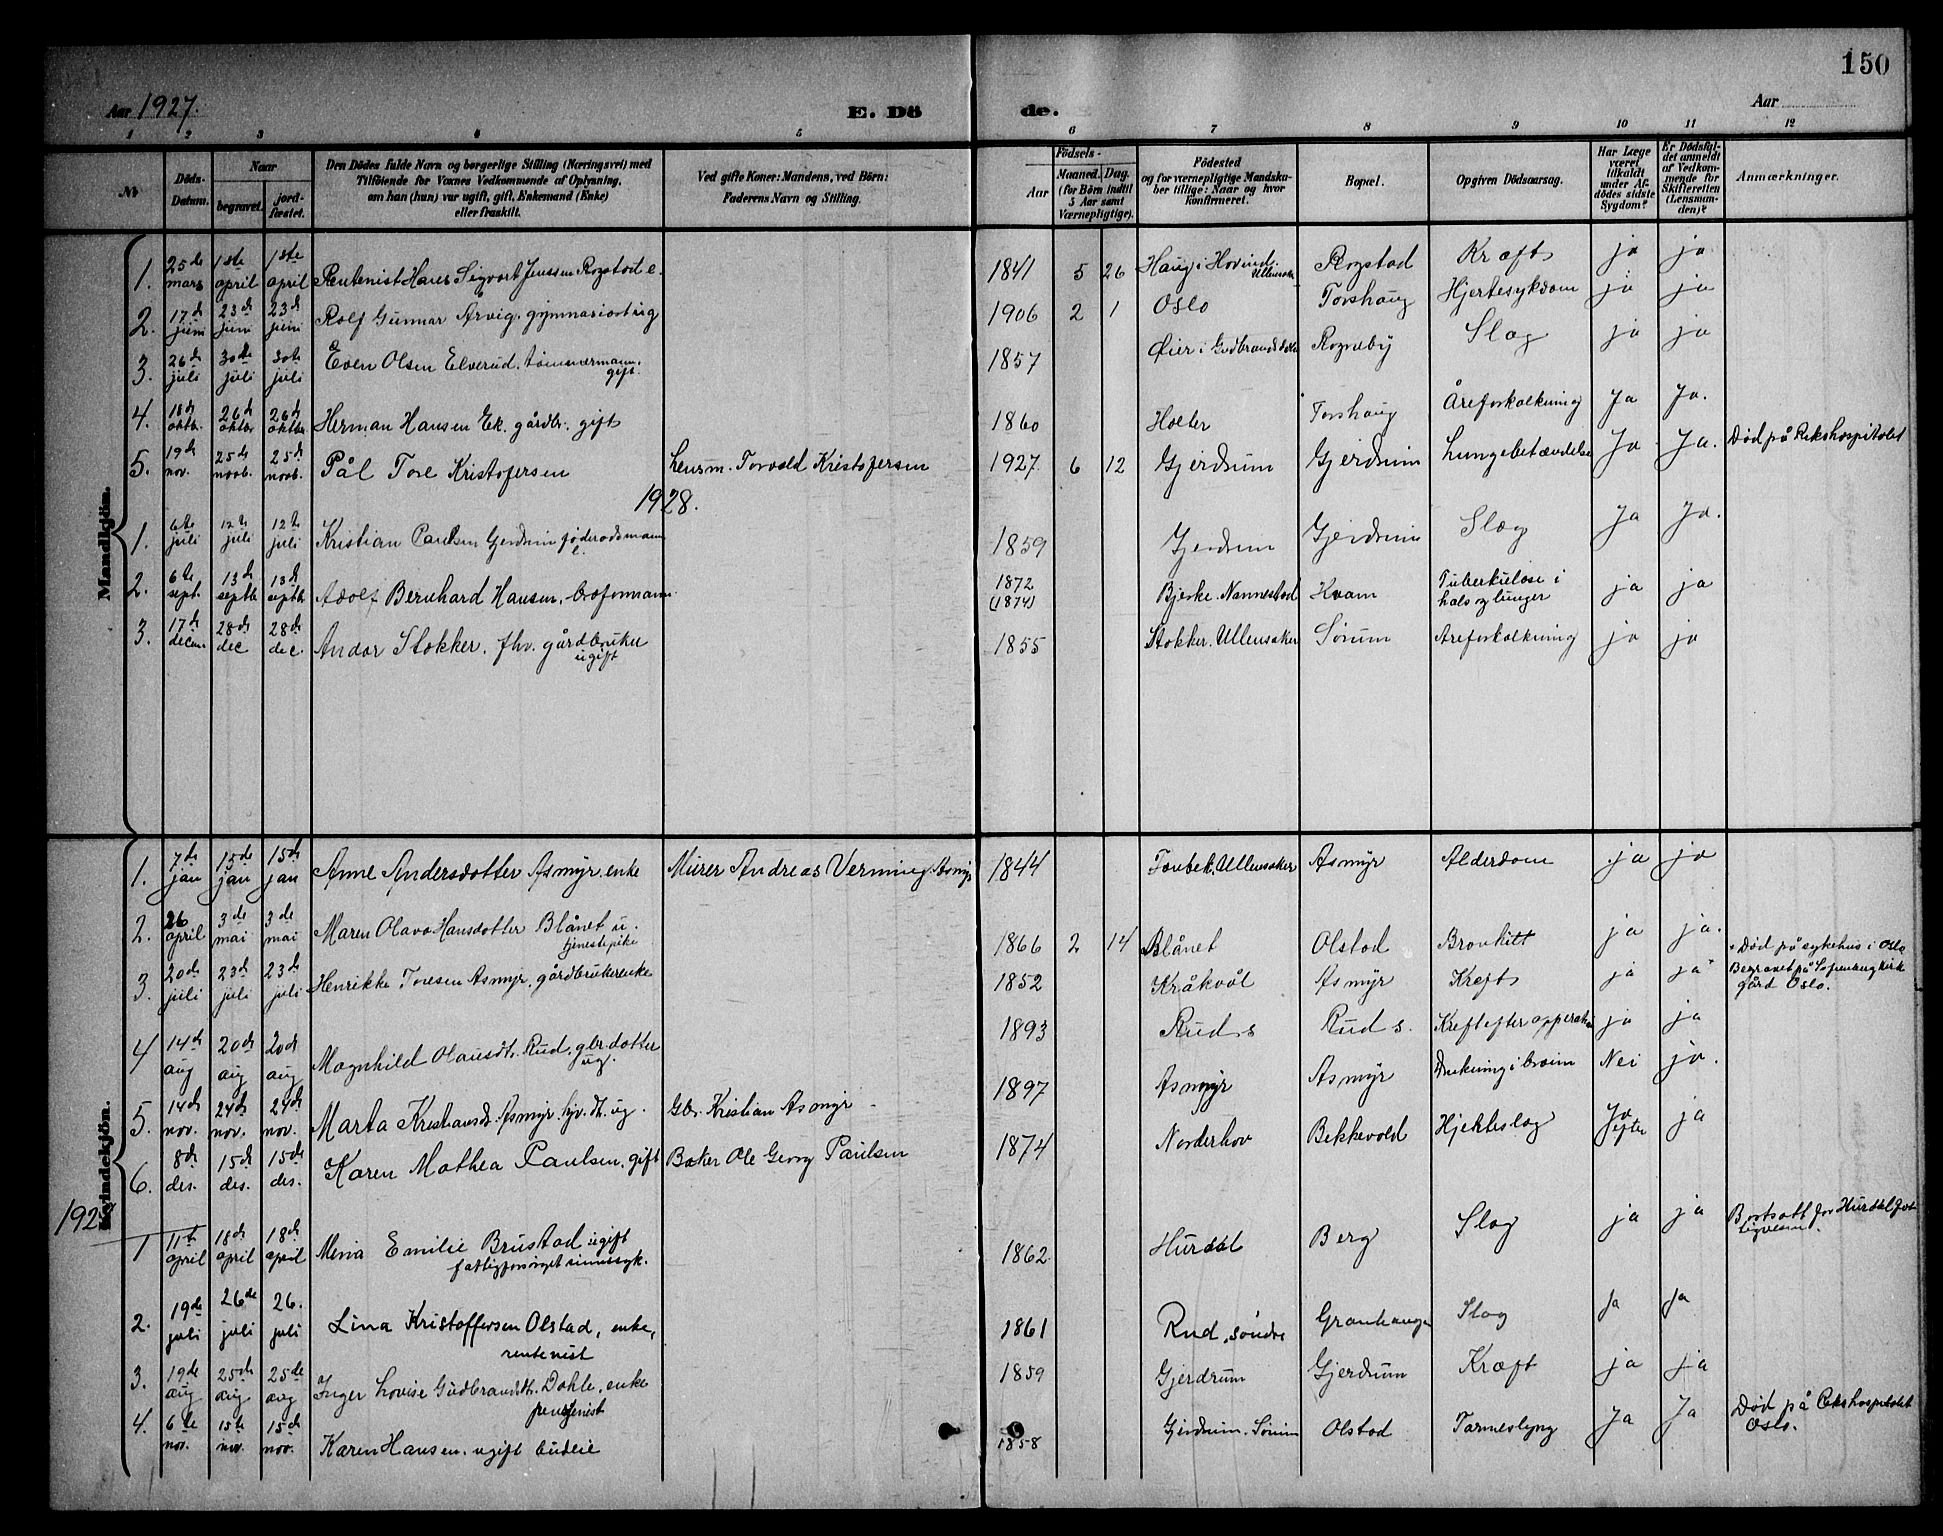 150
Aar 1927.
E. Döde.
Aar
1 2 3 4 5 6 7 8 9 10 11 12
No
Döds-Datum.
Naar
begravet.
jordfæstet.
Den Dödes fulde Navn og borgerlige Stilling (Næringsvei) med Tilföiende for Voxnes Vedkommende af Oplysning, om han (hun) var ugift, gift, Enkemand (Enke) eller fraskilt.
Ved gifte Koner: Mandens, ved Börn: Faderens Navn og Stilling.
Födsels-
Aar
Maaned. Dag.
(for Börn indtil 5 Aar samt Værnepligtige).
Födested og for værnepligtige Mandskaber tillige: Naar og hvor konfirmeret.
Bopæl.
Opgiven Dödsaarsag.
Har Læge været tilkaldt under Afdödes sidste Sygdom?
Er Dödsfaldet anmeldt af Vedkommende for Skifteretten (Lensmanden)?
Anmærkninger.
Mandkjön.
1. 25de mars 1ste april 1ste april Rentenist Hans Sigvart Jenssen Rogstad e. 1841 5 26 Haug i Hovind. Ullensaker Rogstad Kræft ja ja
2. 17d juni 23d juni 23d juni Rolf Gunnar Arvig. gymnasiast ug 1906 2 1 Oslo Torshaug Hjertesykdom ja ja
3. 26de juli 30te juli 30te juli Even Olsen Elverud. tømmermann. gift. 1857 Øier i Gudbrandsdalen Rogneby Slag ja ja
4. 18de oktbr. 26d oktbr 26d oktbr Herman Hansen Ek. gårdbr. gift 1860 Holter Torshaug Åreforkalkning Ja Ja.
5. 19d nov. 25d novb. 25d novb. Pål Tore Kristofersen Lensm. Torvald Kristofersen 1927 6 12 Gjerdrum Gjerdrum Lungebetændelse Ja Ja. Død på Rikshospitalet
1928.
1. 6te juli 12te juli 12te juli Kristian Paulsen Gjerdrum föderadsmann e. 1859 Gjerdrum Gjerdrum Slag Ja Ja.
2. 6te sept. 13d septb 13d septb Adolf Bernhard Hansen, 1872 (1874) Bjerke Nannestad Kvam Tuberkulose i hals og lunger ja ja
3. 17d decem 28de dec 28de dec. Andor Stokker. fhv. gårdbruker ugift 1855 Stokker. Ullensaker Sörum Areforkalkning ja ja
Kvindekjön.
1. 7de jan 15de jan 15d jan Anne Andersdotter Asmyr enke Murer Andreas Verming Asmyr 1844 Ullensaker Asmyr Alderdom ja ja
2. 26 april 3de mai 3de mai Maren Olava Hansdotter Blånet u. tjenestepike 1866 2 14 Blånet Olstad Bronkitt ja ja. Død på sykehus i Oslo
3. 20de juli 23d juli 23d juli Henrikke Toresen Asmyr, gårdbrukerenke 1852 Kråkvål Asmyr Kreft ja ja Begravet på Sofienberg kirkegård Oslo.
4 14d aug 20de aug 20d aug Magnhild Olausdt. Rud, gbr.dotter ug. 1893 Rud s Rud s. Kreft efter opperation ja ja
5. 14d nov. 24d nov. 24d nov. Marta Kristiansdt. Asmyr. ug. Gbr. Kristian Asmyr 1897 Asmyr Asmyr Drukning i brøn Nei ja.
6. 8de des. 15d des. 15d des. Karen Mathea Paulsen, gift Baker Ole Georg Paulsen 1874 Norderhov Bekkevold Hjerteslag Ja efter ja
1928
1 11t april 18d april 18d april Mina Emilie Brustad ugift fattigforsörget sinnssyk. 1862 Hurdal Berg Slag ja ja Bortsatt for Hurdal
2. 19de juli 26de juli 26. juli Lina Kristoffersen Olstad, enke, rentenist 1861 Rud, söndre Granhaugen Slag Ja Ja
3. 19de aug 25de aug 25de aug Inger Lovise Gudbrandsdt. Dahle, enke pensjonist 1859 Gjerdrum Gjerdrum Kræft ja ja
4. 6te nov. 15te nov. 15d nov. Karen Hansen. ugift budeie 1858 Gjerdrum. Sörum Olstad Tarmeslyng Ja Ja Død på Rikshospitalet Oslo.